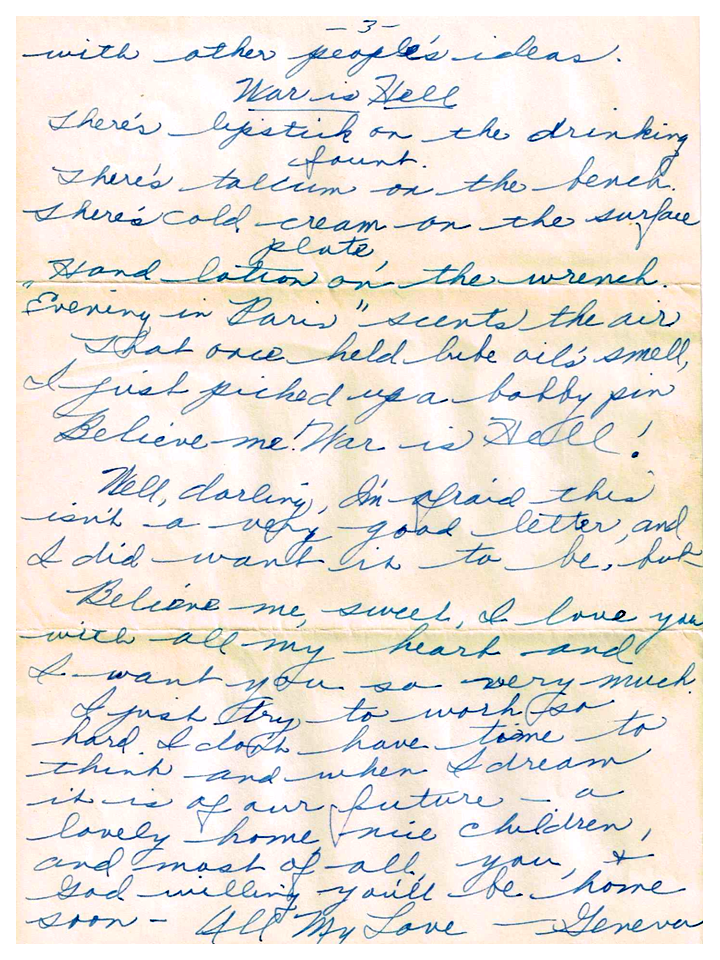 -3-
with other people's ideas.
War is Hell
There's lipstick on the drinking
fount.
There's talcum on the bench.
There's cold cream on the surface
plate,
Hand lotion on the wrench.
"Evening in Paris" scents the air
That once held lube oil's smell,
I just picked up a bobby pin
Believe me! War is Hell!
Well, darling, I'm afraid this
isn't a very good letter, and
I did want it to be, but
Believe me, sweet, I love you
with all my heart and
I want you so very much.
I just try to work so
hard I don't have time to
think and when I dream
it is of our future - a
lovely home, nice children,
and most of all, you, &
God willing you'll be home
soon - All My Love - Geneva